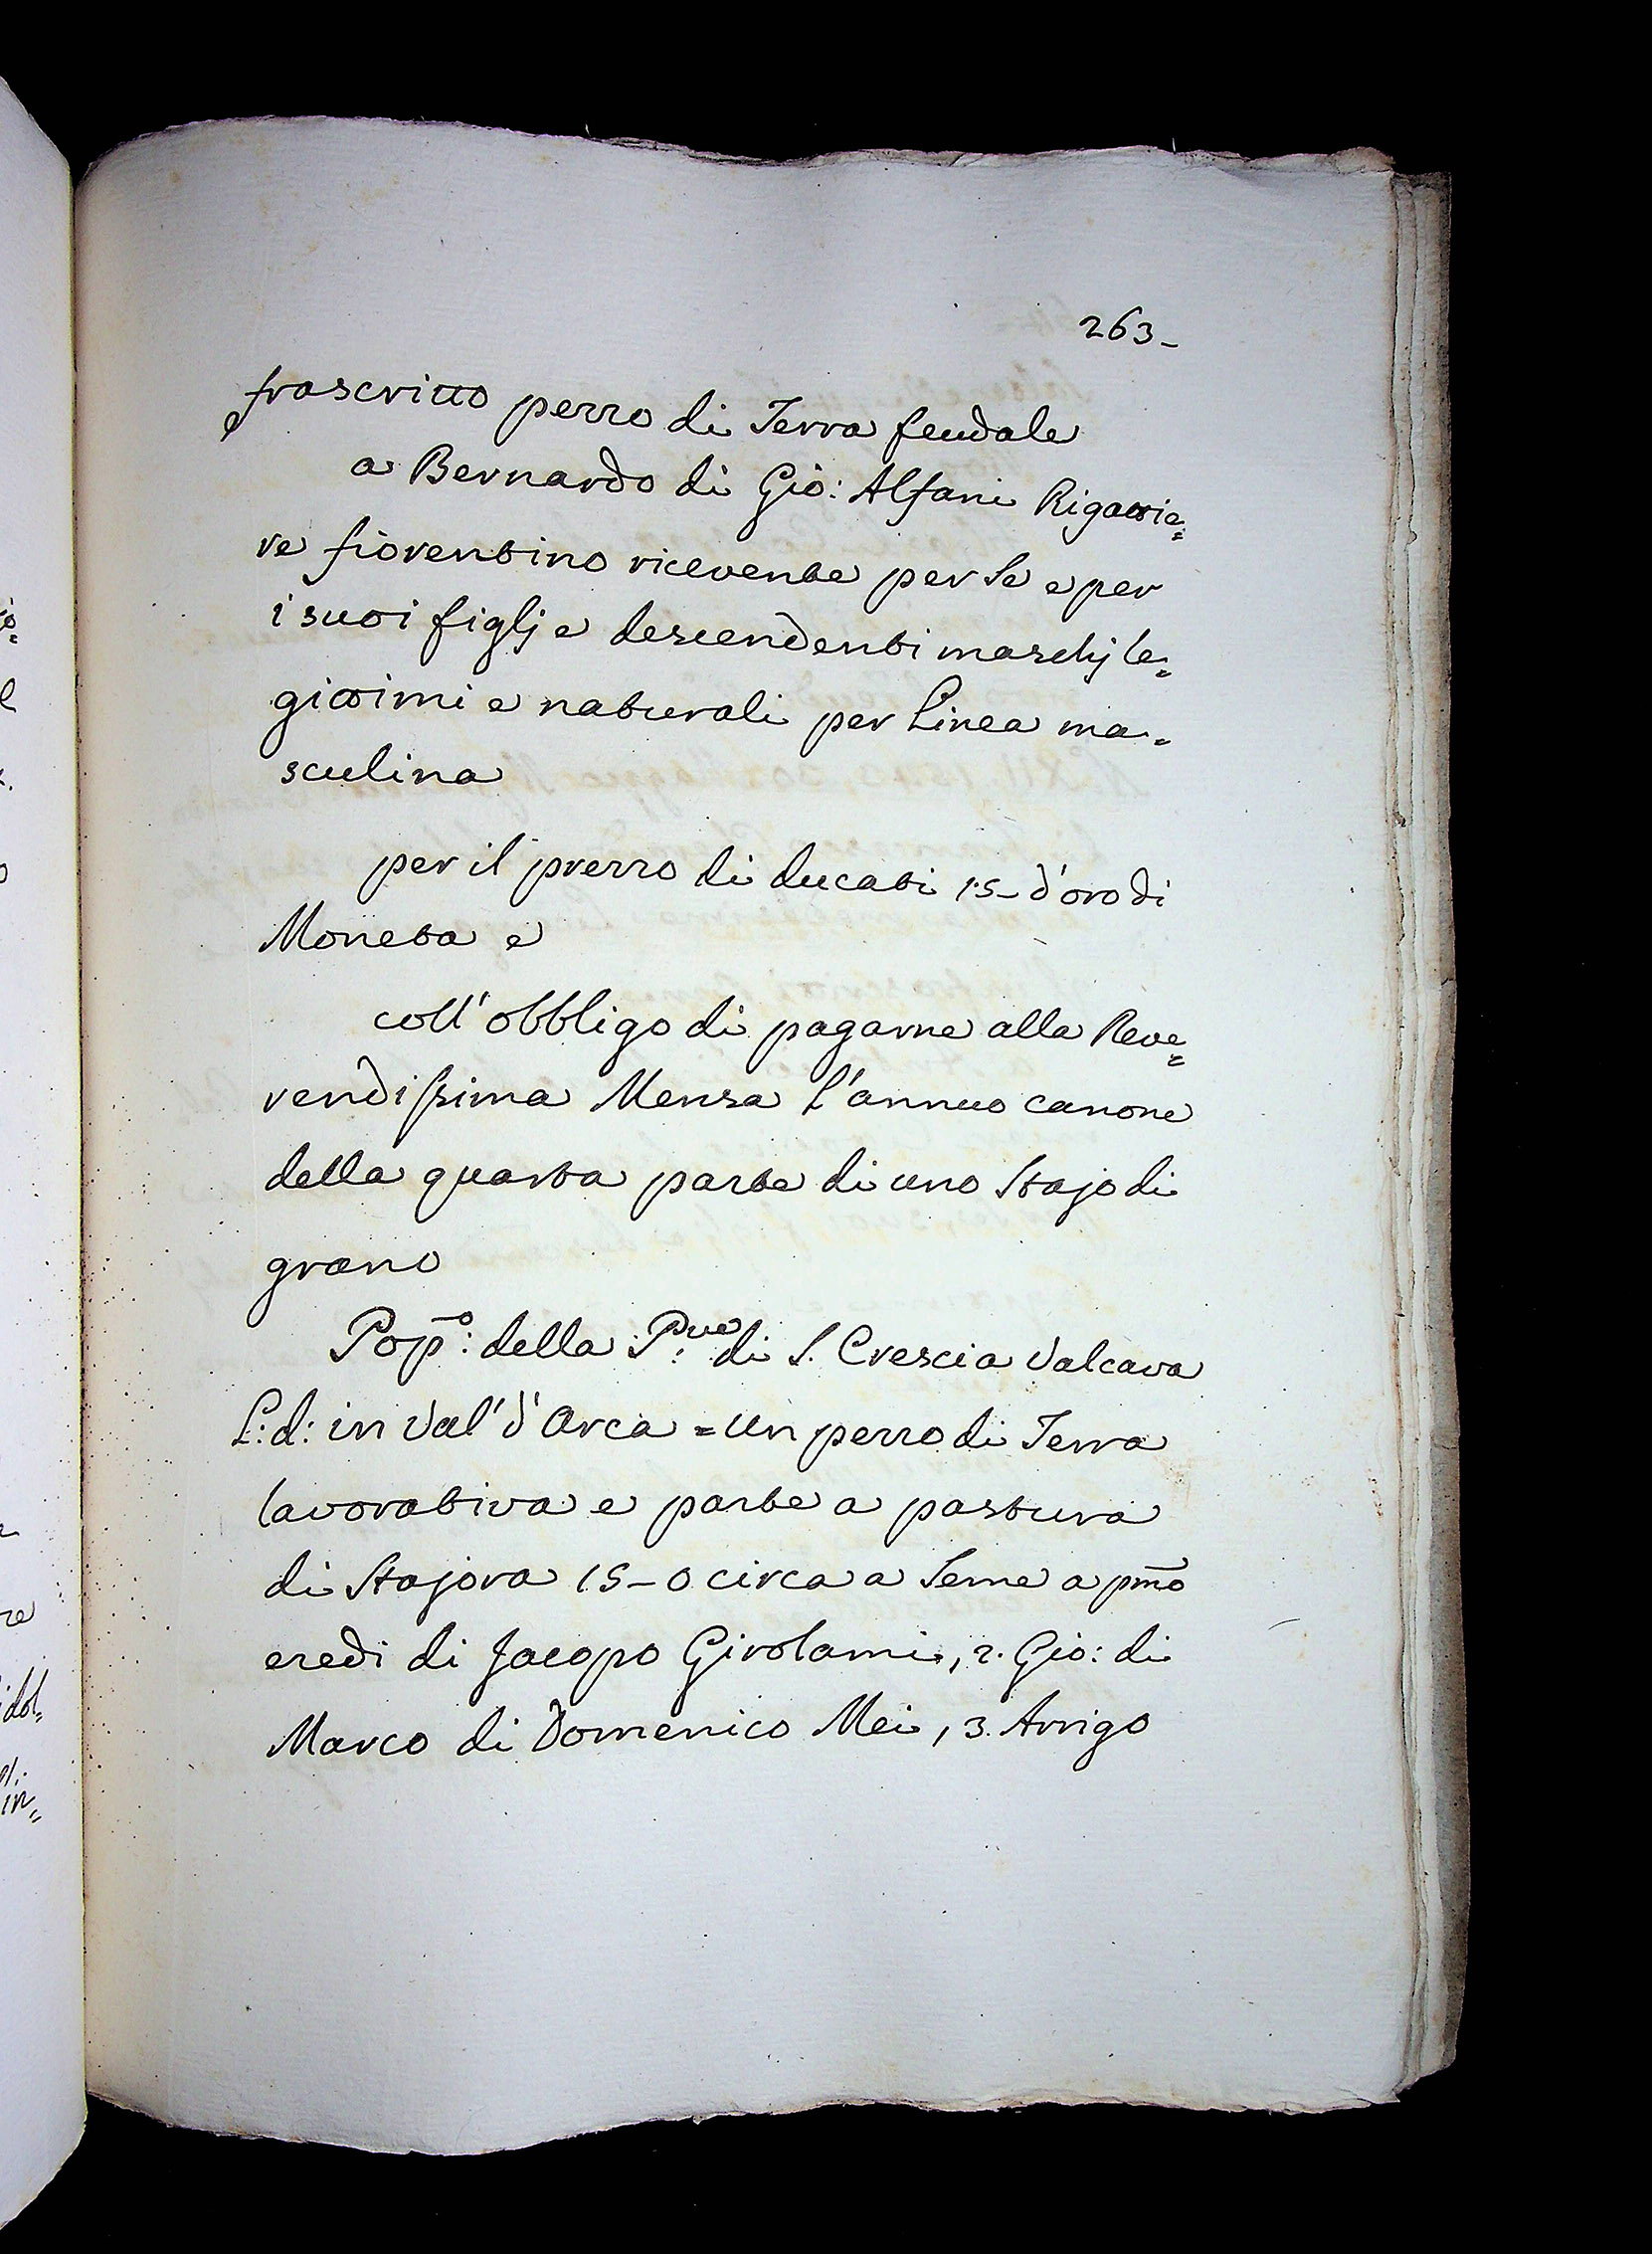 263-
frascritto pezzo di Terra feudale
a Bernardo di Gio: Alfani Rigattie=
re fiorentino ricevente per Se e per
i suoi figlj e descendenti maschj le=
gittimi e naturali per Linea ma=
sculina
per il prezzo di ducati 15- d'oro di
Moneta e
coll'obbligo di pagarne alla Reve=
rendissima Mensa l'annuo canone
della quarta parte di uno Stajo di
grano
Pop.o: della P:ve di S. Crescia Valcava
L: d: in Val'd'Arca = Un pezzo di Terra
lavorativa e parte a pastura
di Stajora 15-0 circa a Seme a pmo
eredi di Jacopo Girolami, 2. Gio: di
Marco di Domenico Mei, 3. Arrigo